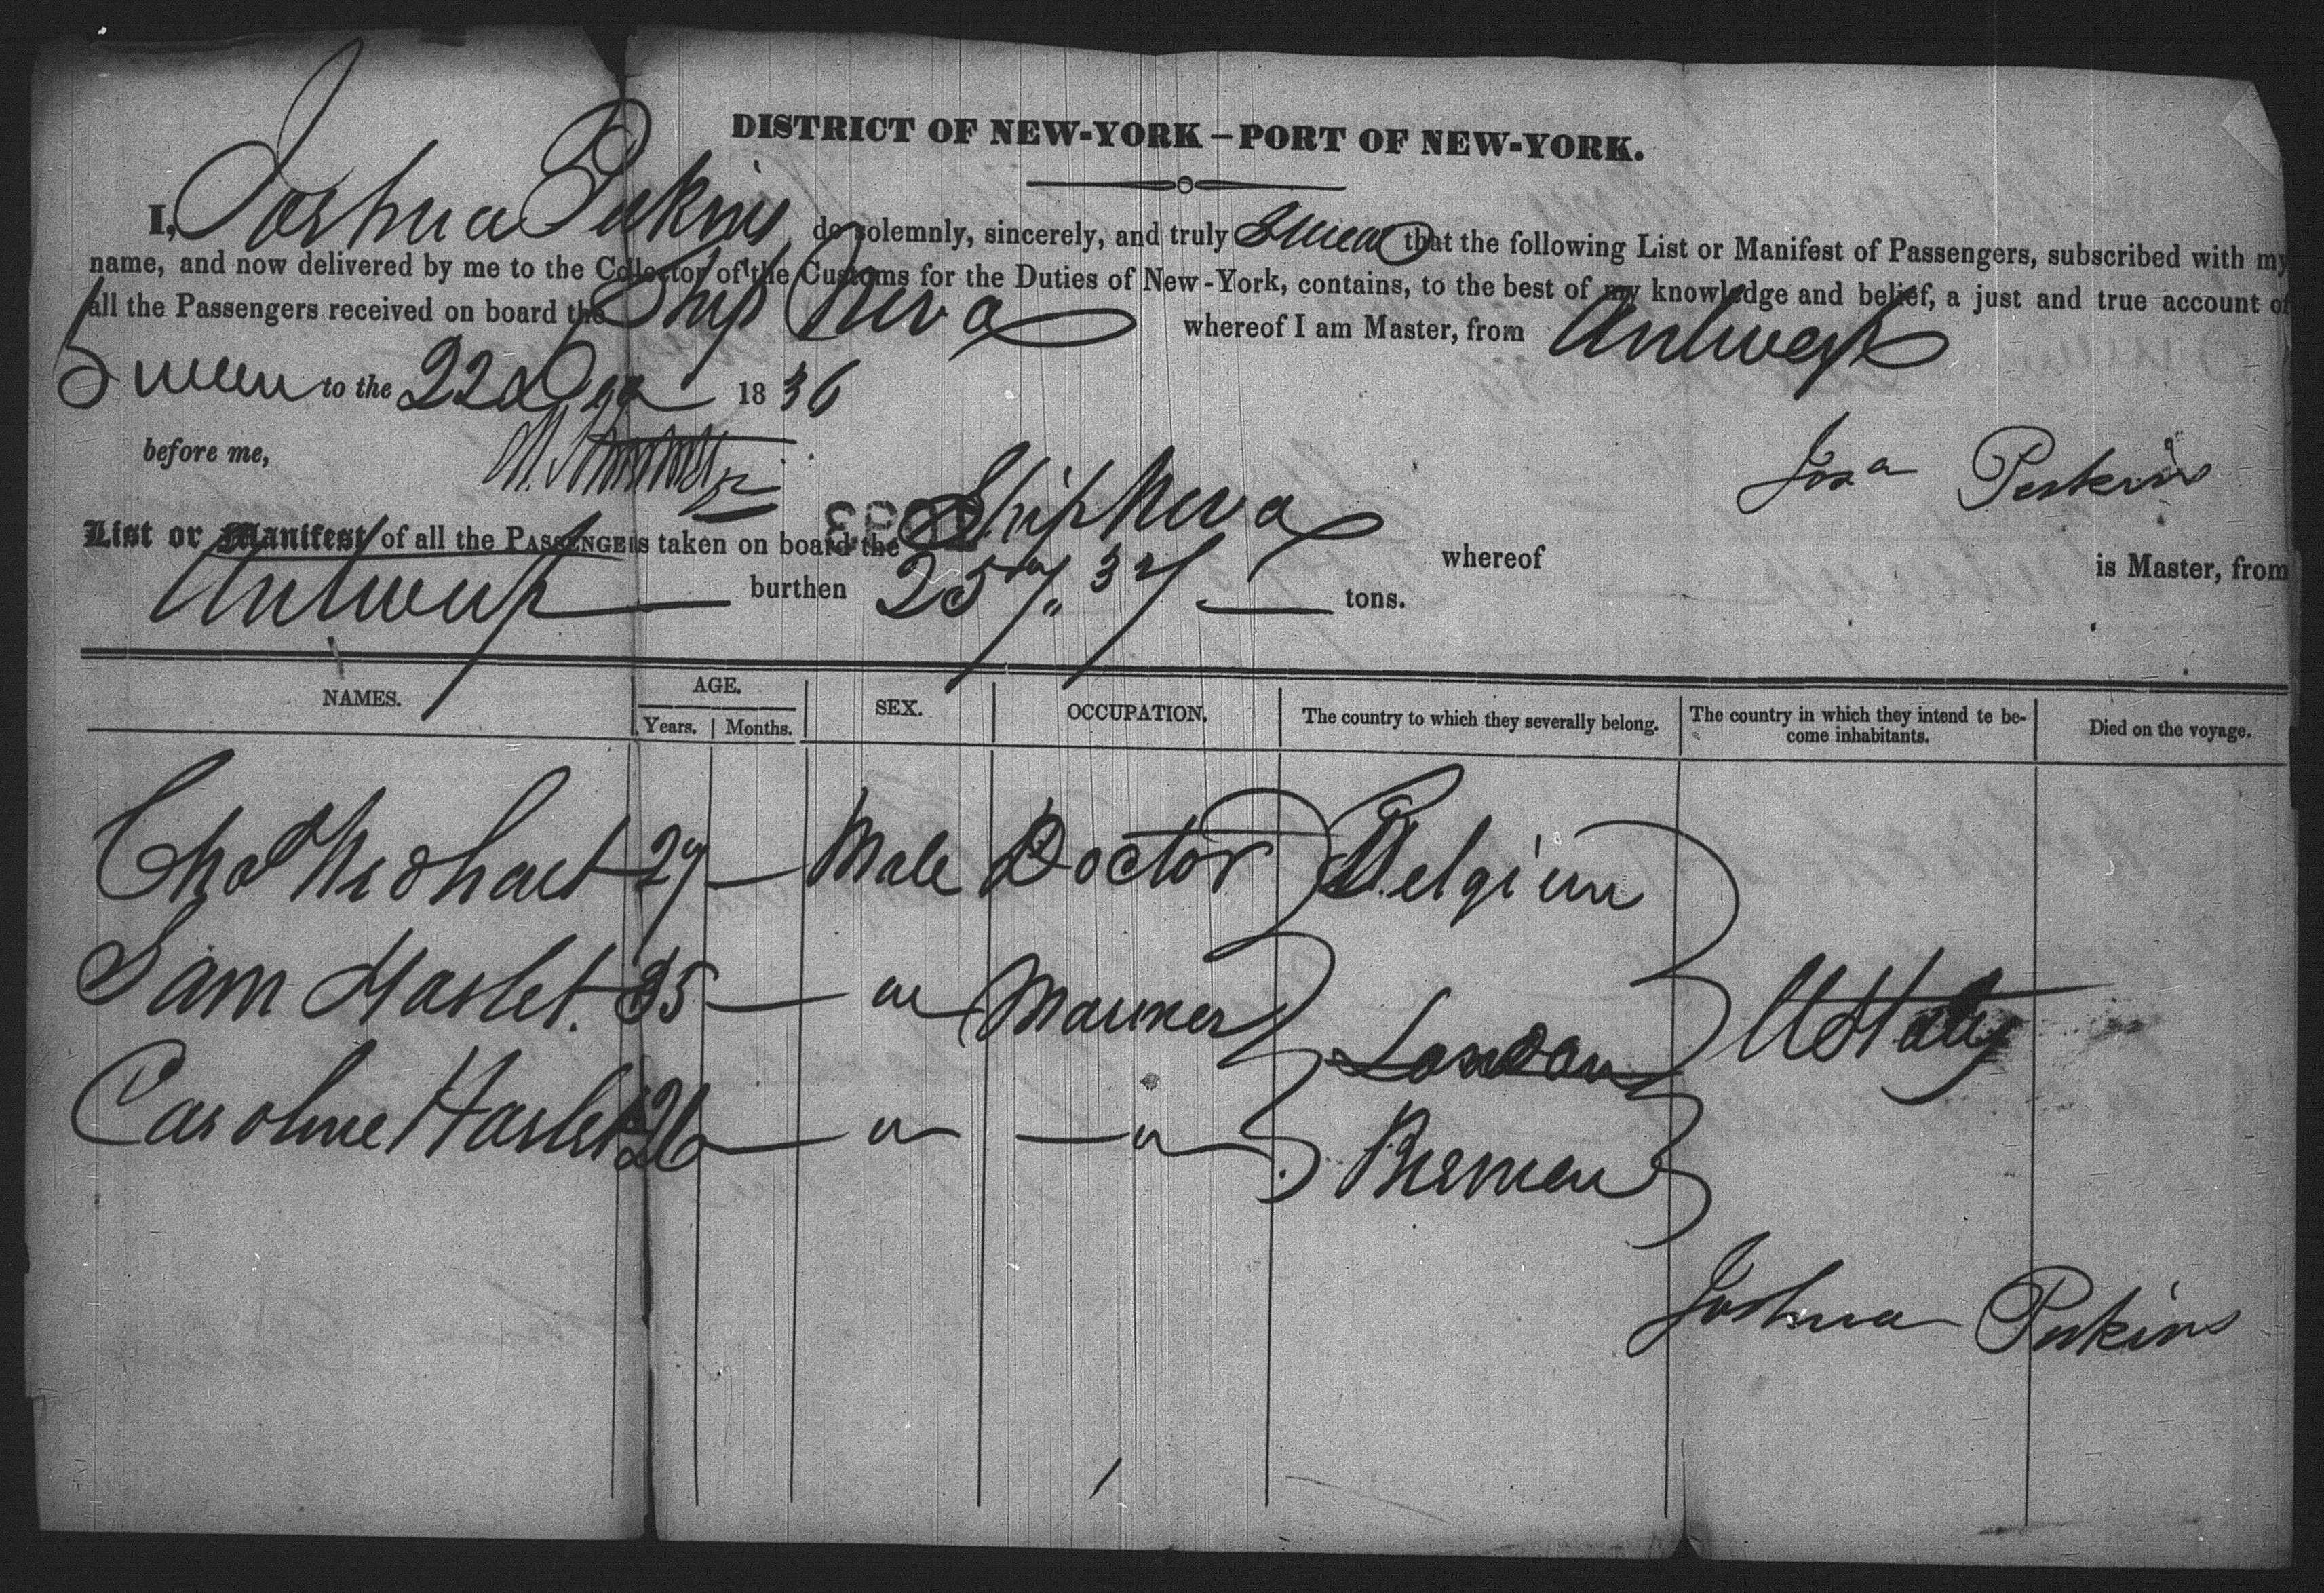 DISTRICT OF NEW-YORK – PORT OF NEW-YORK.
I, Joshua Perkins do solemnly, sincerely, and truly Swear that the following List or Manifest of Passengers, subscribed with my
name, and now delivered by me to the Collector of the Customs for the Duties of New-York, contains, to the best of my knowledge and belief, a just and true account of
all the Passengers received on board the Ship Neva whereof I am Master, from Antwerp
Sworn to the 22d 1836
before me,
Josa Perkins
List or Manifest of all the PASSENGERS taken on board the Ship Neva whereof is Master, from
Antwerp burthen tons.
NAMES. AGE. SEX. OCCUPATION. The country to which they severally belong. The country in which they intend to be- Died on the voyage.
Years. Months. come inhabitants.
Chas 27 — Male Doctor Belgium
Sam Haslet. 35 — " Mariner London U States
Caroline Haslet 26 — " — " Bremen
Joshua Perkins